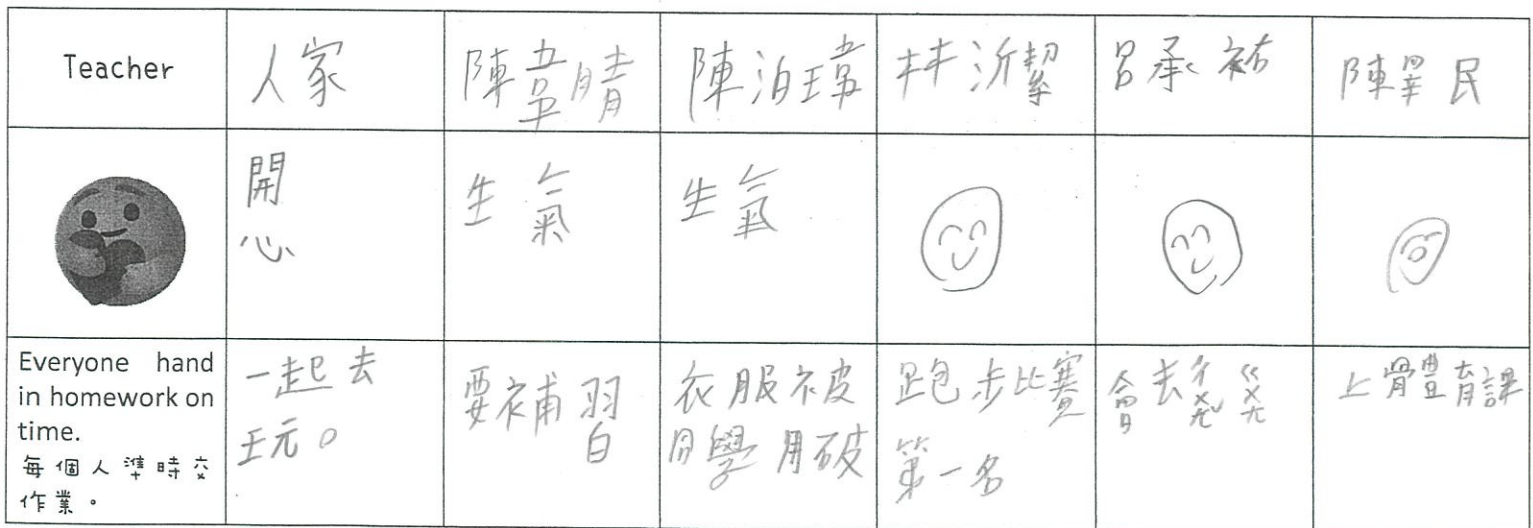 Teacher
人家
陳韋晴
陳泊瑋
林沂絜
呂承祐
陳睪民
開
心
生氣
生氣
Everyone hand
in homework on
time.
每個人準時交
作業。
一起去
玩。
要補習
衣服被
同學用破
跑步比賽
第一名
會去ㄔㄨㄤˇㄍㄨㄤ
上體育課